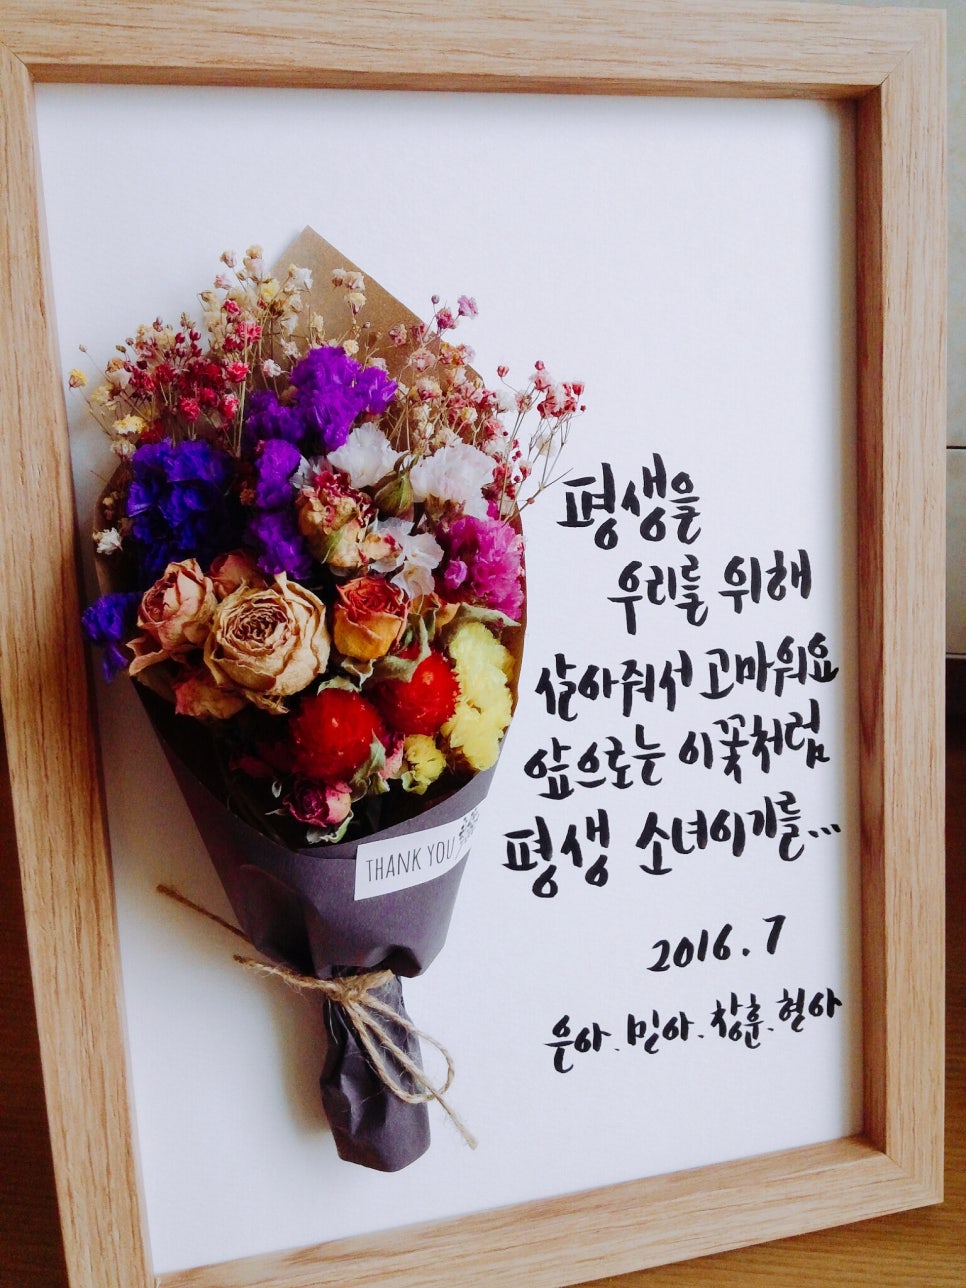 평생을
우리를 위해
살아줘서 고마워요
앞으로는 이꽃처럼
평생 소녀이기를...
2016.7
은아.민아.창훈.현아
THANK YOU